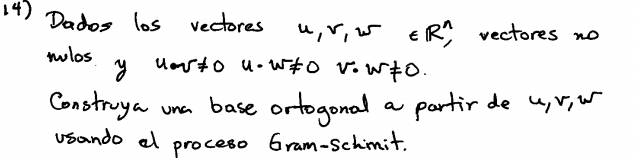 14) Dados los vectores u, v, w ∈ ℝⁿ, vectores no
nulos y u•v≠0 u•w≠0 v•w≠0.
Construya una base ortogonal a partir de u, v, w
usando el proceso Gram-Schimit.